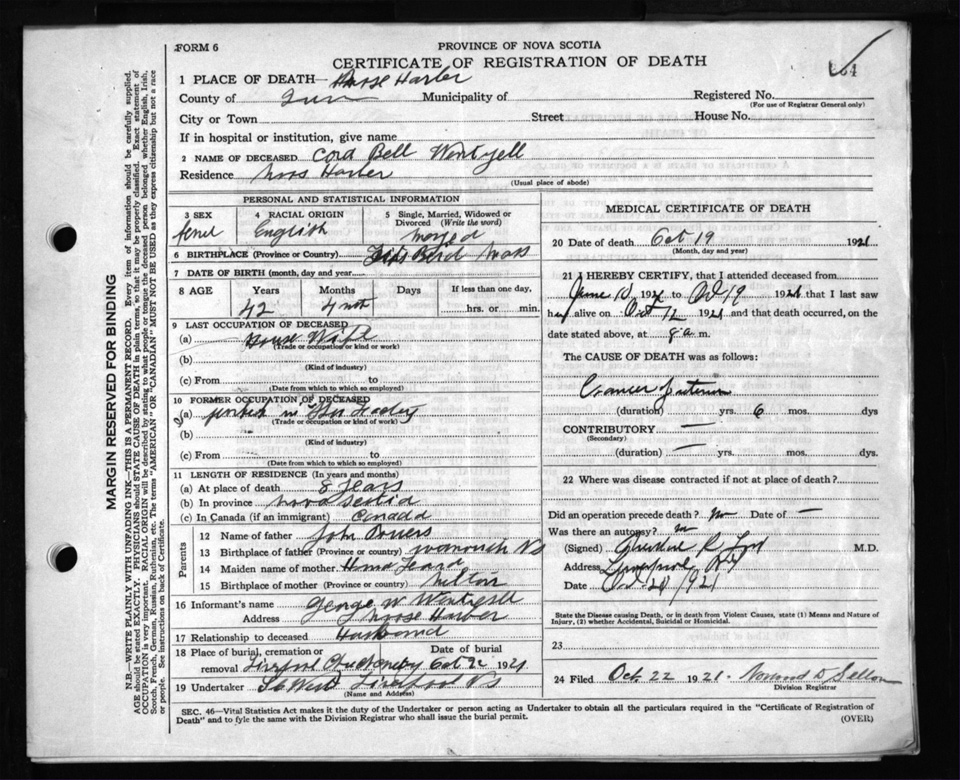 FORM 6
PROVINCE OF NOVA SCOTIA
CERTIFICATE OF REGISTRATION OF DEATH
1 PLACE OF DEATH— Harber
County of Municipality of Registered No.
(For use of Registrar General only)
City or Town Street House No.
If in hospital or institution, give name
2 NAME OF DECEASED Cord Bell Wentzell
Residence Moos Harber
(Usual place of abode)
PERSONAL AND STATISTICAL INFORMATION
3 SEX 4 RACIAL ORIGIN 5 Single, Married, Widowed or Divorced (Write the word)
English
6 BIRTHPLACE (Province or Country) Mass
7 DATE OF BIRTH (month, day and year)
8 AGE Years Months Days If less than one day,
42 4 hrs. or min.
9 LAST OCCUPATION OF DECEASED
(a) House Wife
(Trade or occupation or kind or work)
(b)
(Kind of industry)
(c) From to
(Date from which to which so employed)
10 FORMER OCCUPATION OF DECEASED
(a) in
(Trade or occupation or kind of work)
(b)
(Kind of industry)
(c) From to
(Date from which to which so employed)
11 LENGTH OF RESIDENCE (In years and months)
(a) At place of death 8 Years
(b) In province Nova Scotia
(c) In Canada (if an immigrant) Canada
Parents
12 Name of father John
13 Birthplace of father (Province or country) NS
14 Maiden name of mother
15 Birthplace of mother (Province or country) Milton
16 Informant's name George W Wentzell
Address Moose Harber
17 Relationship to deceased Husband
18 Place of burial, cremation or removal Date of burial
Oct 22 1921
19 Undertaker St West Liverpool NS
(Name and Address)
MEDICAL CERTIFICATE OF DEATH
20 Date of death Oct 19 1921
(Month, day and year)
21 I HEREBY CERTIFY, that I attended deceased from
June 1921 to Oct 19 1921 that I last saw
her alive on Oct 12 1921 and that death occurred, on the
date stated above, at 9 a m.
The CAUSE OF DEATH was as follows:
Cancer
(duration) yrs. 6 mos. dys
CONTRIBUTORY —
(Secondary)
(duration) — yrs. mos. dys
22 Where was disease contracted if not at place of death?
Did an operation precede death? No Date of —
Was there an autopsy? No
(Signed) M.D.
Address Liverpool NS
Date Oct 20/1921
State the Disease causing Death, or in death from Violent Causes, state (1) Means and Nature of
Injury, (2) whether Accidental, Suicidal or Homicidal.
23
24 Filed Oct 22 1921.
Division Registrar
SEC. 46—Vital Statistics Act makes it the duty of the Undertaker or person acting as Undertaker to obtain all the particulars required in the "Certificate of Registration of
Death" and to fyle the same with the Division Registrar who shall issue the burial permit.
(OVER)
MARGIN RESERVED FOR BINDING
N.B.—WRITE PLAINLY WITH UNFADING INK—THIS IS A PERMANENT RECORD. Every item of information should be carefully supplied.
AGE should be stated EXACTLY. PHYSICIANS should STATE CAUSE OF DEATH in plain terms, so that it may be properly classified. Exact statement of
OCCUPATION is very important. RACIAL ORIGIN will be described by stating to what people or tongue the deceased person belonged whether English, Irish,
Scotch, French, German, Russian, Ruthenian, etc. The terms "AMERICAN" OR "CANADIAN" MUST NOT BE USED as they express citizenship but not a race
or people. See instructions on back of Certificate.